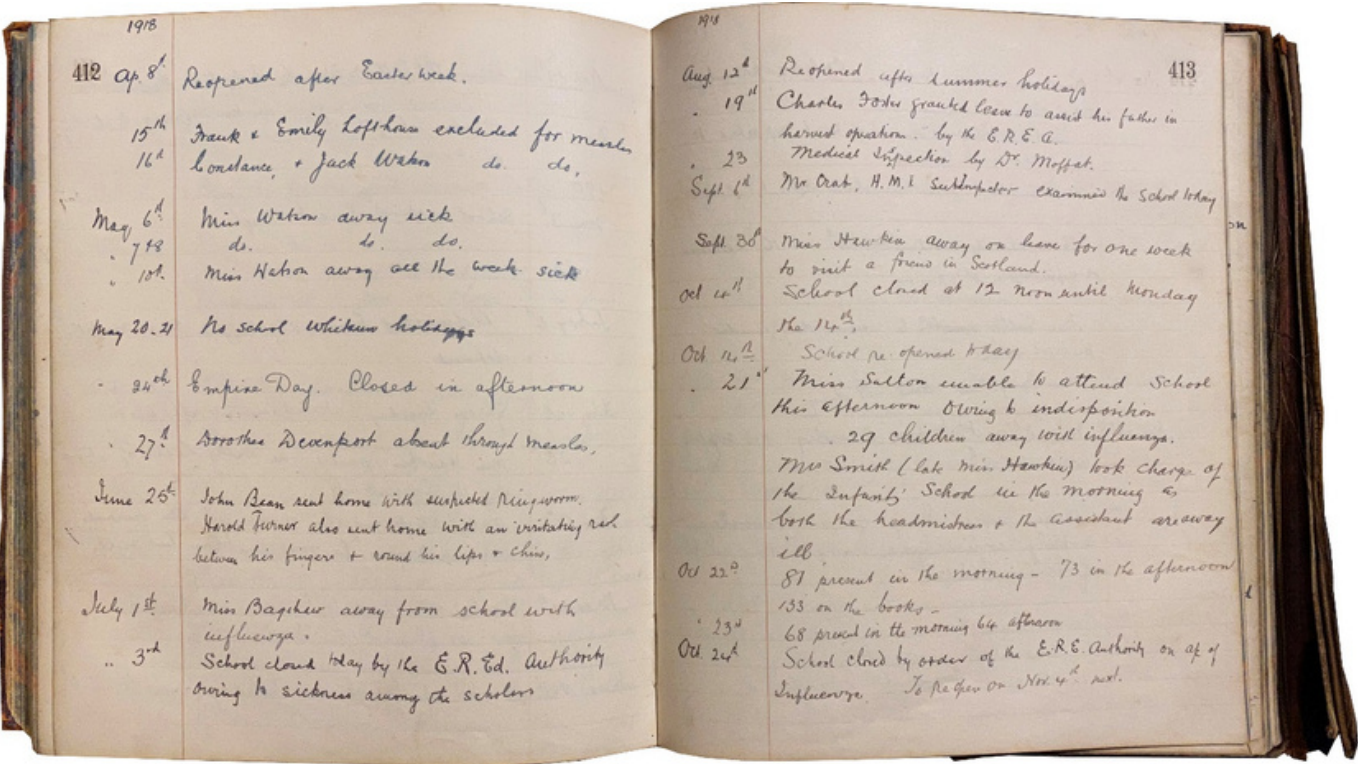 1918
412 Ap. 8th Reopened after Easter week.
15th Frank & Emily Lofthouse excluded for measles
16th Constance, & Jack Watson do. do,
May 6th Miss Watson away sick
" 7 & 8 do. do. do.
" 10th Miss Watson away all the week sick
May 20-21 No school Whitsun holidays
" 24th Empire Day. Closed in afternoon
" 27th Dorothea Devenport absent through measles,
June 25th John Bean sent home with suspected Ringworm.
Harold Turner also sent home with an irritating rash
between his fingers & round his lips & chin,
July 1st Miss Bagshaw away from school with
influenza.
" 3rd School closed today by the E.R.Ed. Authority
owing to sickness among the scholars
1918
413
Aug. 12th Reopened after summer holidays
" 19th Charles Foster granted leave to assist his father in
harvest operations. by the E.R.E.A.
" 23 Medical Inspection by Dr. Moffat.
Sept. 6th Mr H.M.I. SubInspector examined the school today
Sept. 30th Miss Hawkin away on leave for one week
to visit a friend in Scotland.
Oct School closed at 12 noon until Monday
the 14th.
Oct 14th School re-opened today
" 21st Miss Sutton unable to attend School
this afternoon owing to indisposition
29 children away with influenza.
Mrs Smith (late Miss Hawkin) took charge of
the Infants' School in the morning as
both the headmistress & the assistant are away
ill
Oct 22nd 81 present in the morning - 73 in the afternoon
133 on the books -
" 23rd 68 present in the morning 64 afternoon
Oct. 24th School closed by order of the E.R.E. Authority on a/c of
Influenza. To Re open on Nov. 4th next.
on